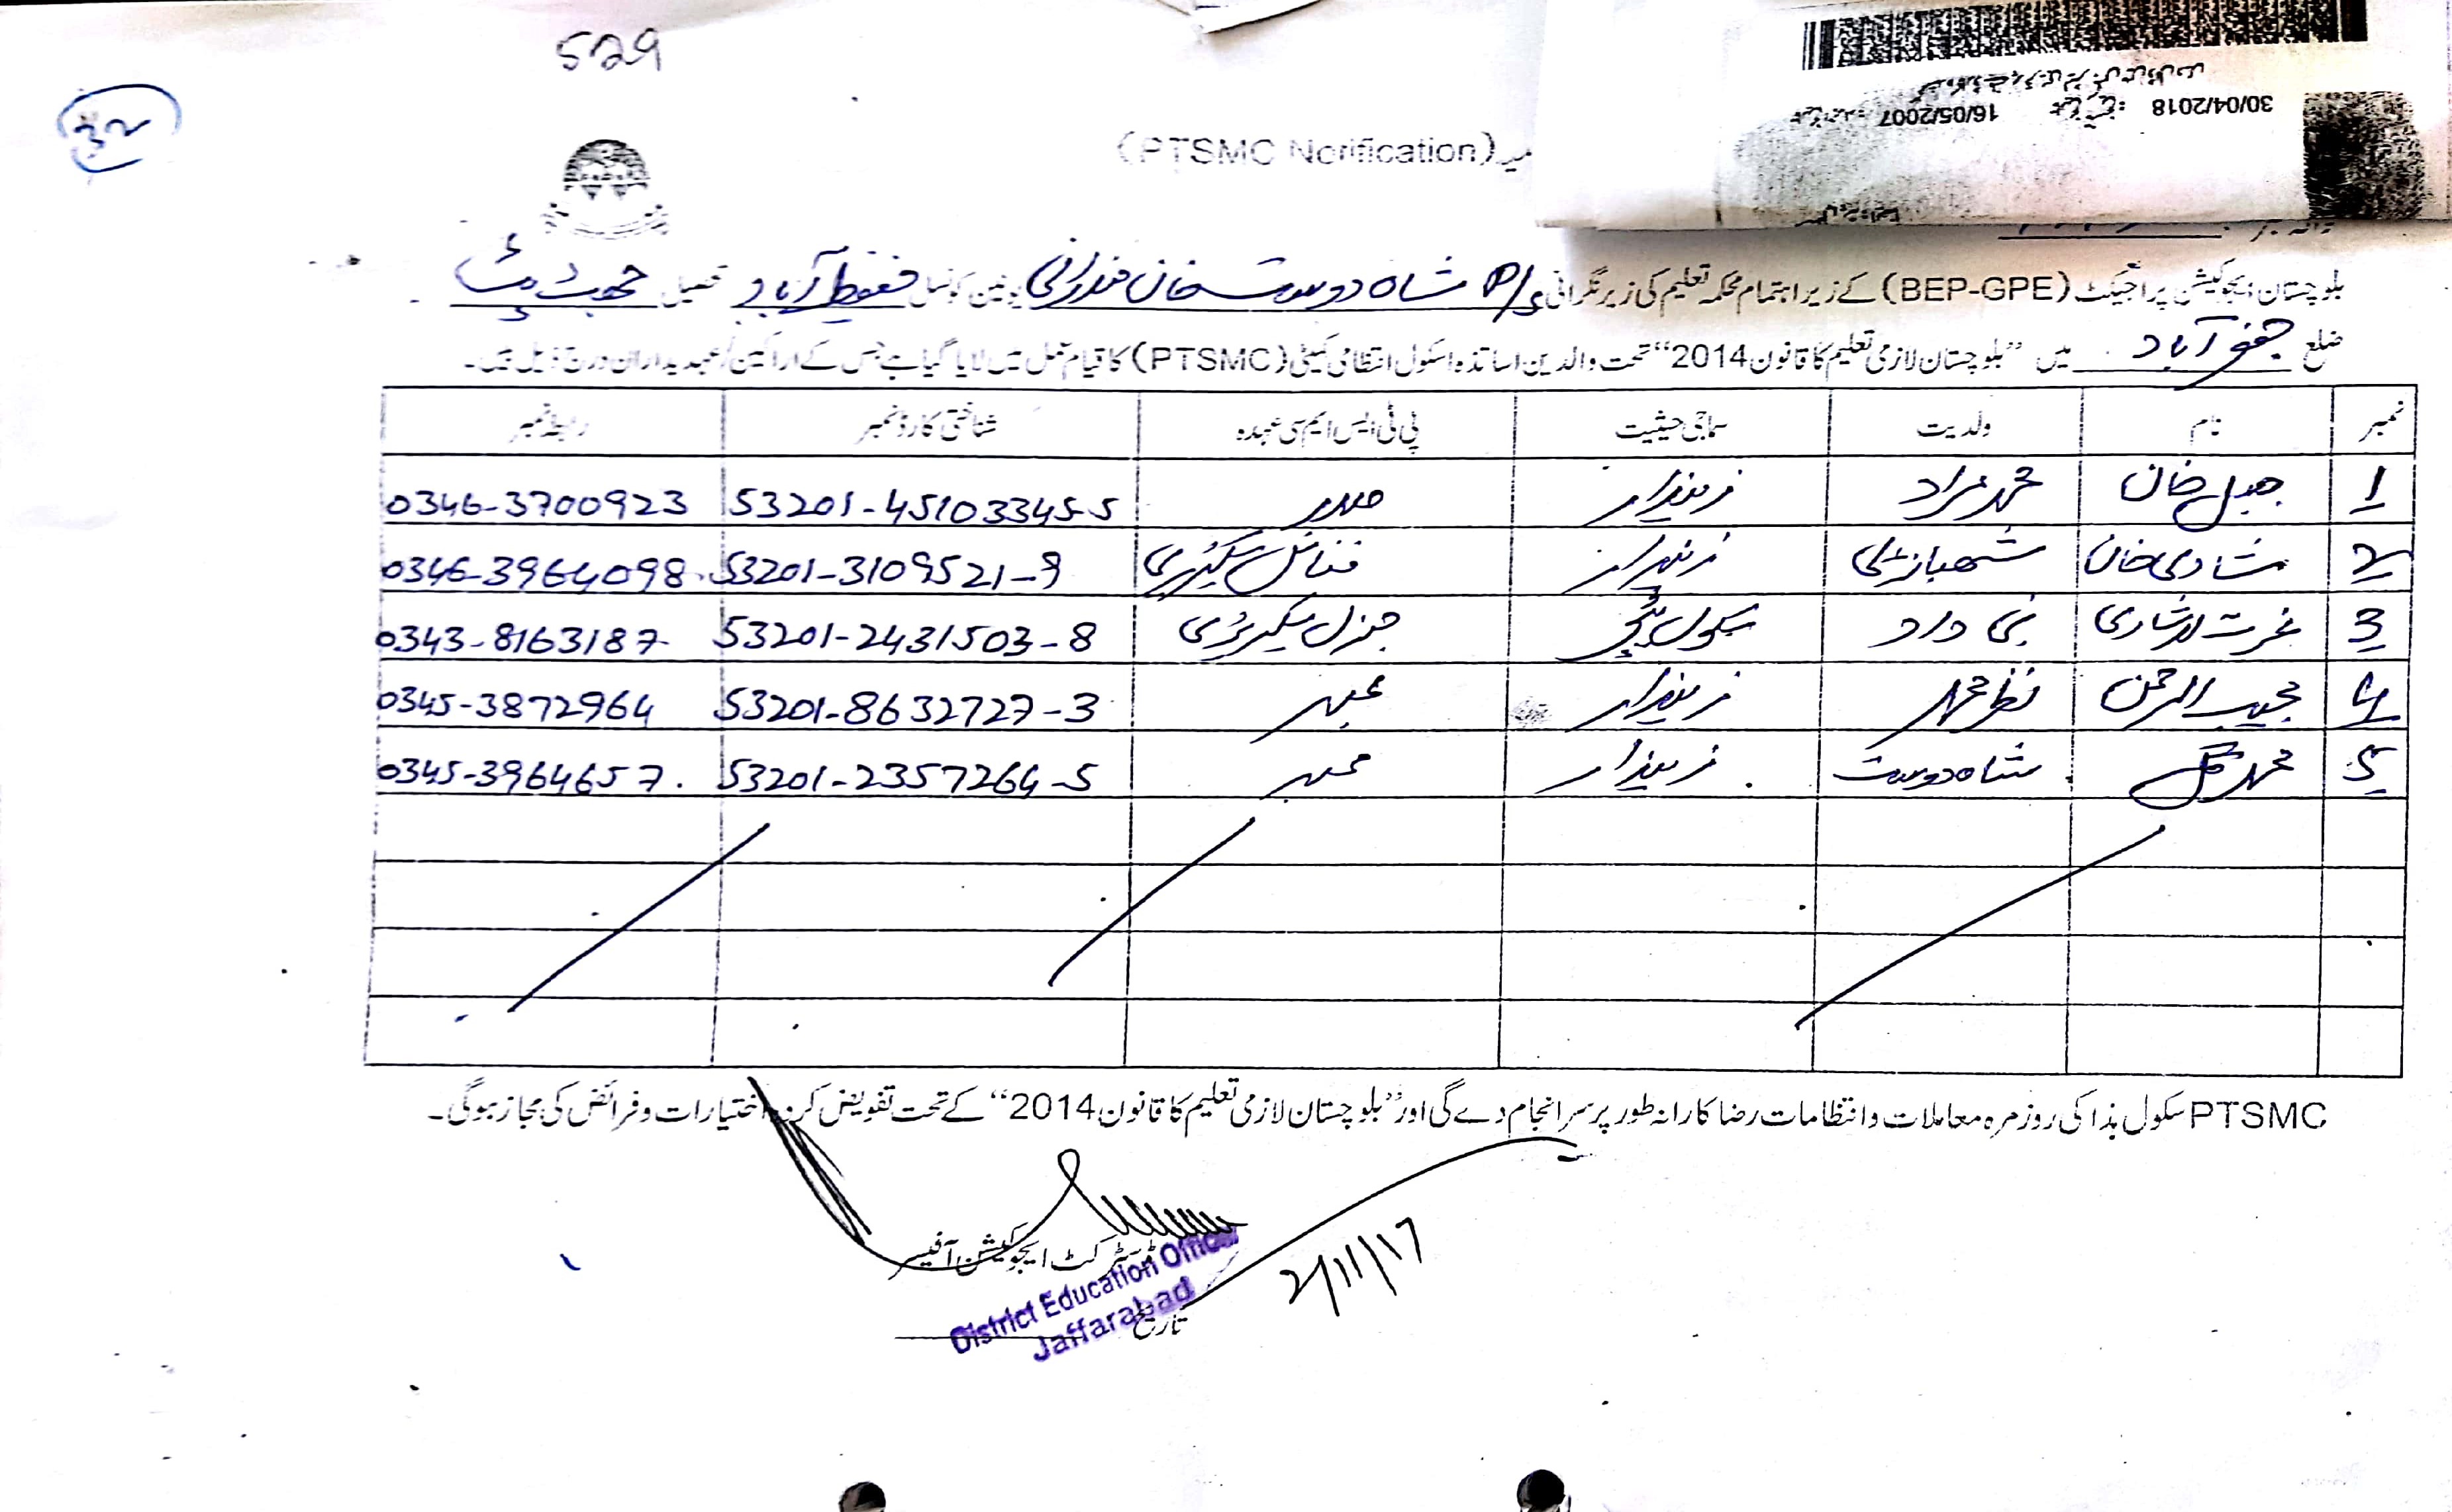 529
32
(PTSMC Norification)
30/04/2018 16/05/2007
بلوچستان ایجوکیشن پراجیکٹ (BEP-GPE) کے زیر اہتمام محکمہ تعلیم کی زیر نگرانی P/S شاہ دوست خان مندرانی یونین کونسل حفیظ آباد تحصیل جھٹ پٹ
ضلع جعفر آباد میں ”بلوچستان لازمی تعلیم کا قانون 2014“ تحت والدین اساتذہ اسکول انتظامی کمیٹی (PTSMC) کا قیام عمل میں لایا گیا ہے جس کے اراکین/عہدیداران درج ذیل ہیں۔
نمبر نام ولدیت سماجی حیثیت پی ٹی ایس ایم سی عہدہ شناختی کارڈ نمبر رابطہ نمبر
1 خان محمد مراد زمیندار صدر 53201-45103345-5 0346-3700923
2 شادی خان شہباز علی زمیندار فنانس سیکریٹری 53201-3109521-9 0346-3964098
3 نبی داد سکول ٹیچر جنرل سیکریٹری 53201-2431503-8 0343-8163187
4 مجیب الرحمن نظر محمد زمیندار ممبر 53201-8632727-3 0345-3872964
5 محمد گل شاہ دوست زمیندار ممبر 53201-2357264-5 0345-3964657
PTSMC سکول ہذا کی روزمرہ معاملات و انتظامات رضا کارانہ طور پر سرانجام دے گی اور ”بلوچستان لازمی تعلیم کا قانون 2014“ کے تحت تفویض کردہ اختیارات و فرائض کی مجاز ہوگی۔
ڈسٹرکٹ ایجوکیشن آفیسر
District Education Officer
Jaffarabad
تاریخ
2/11/17